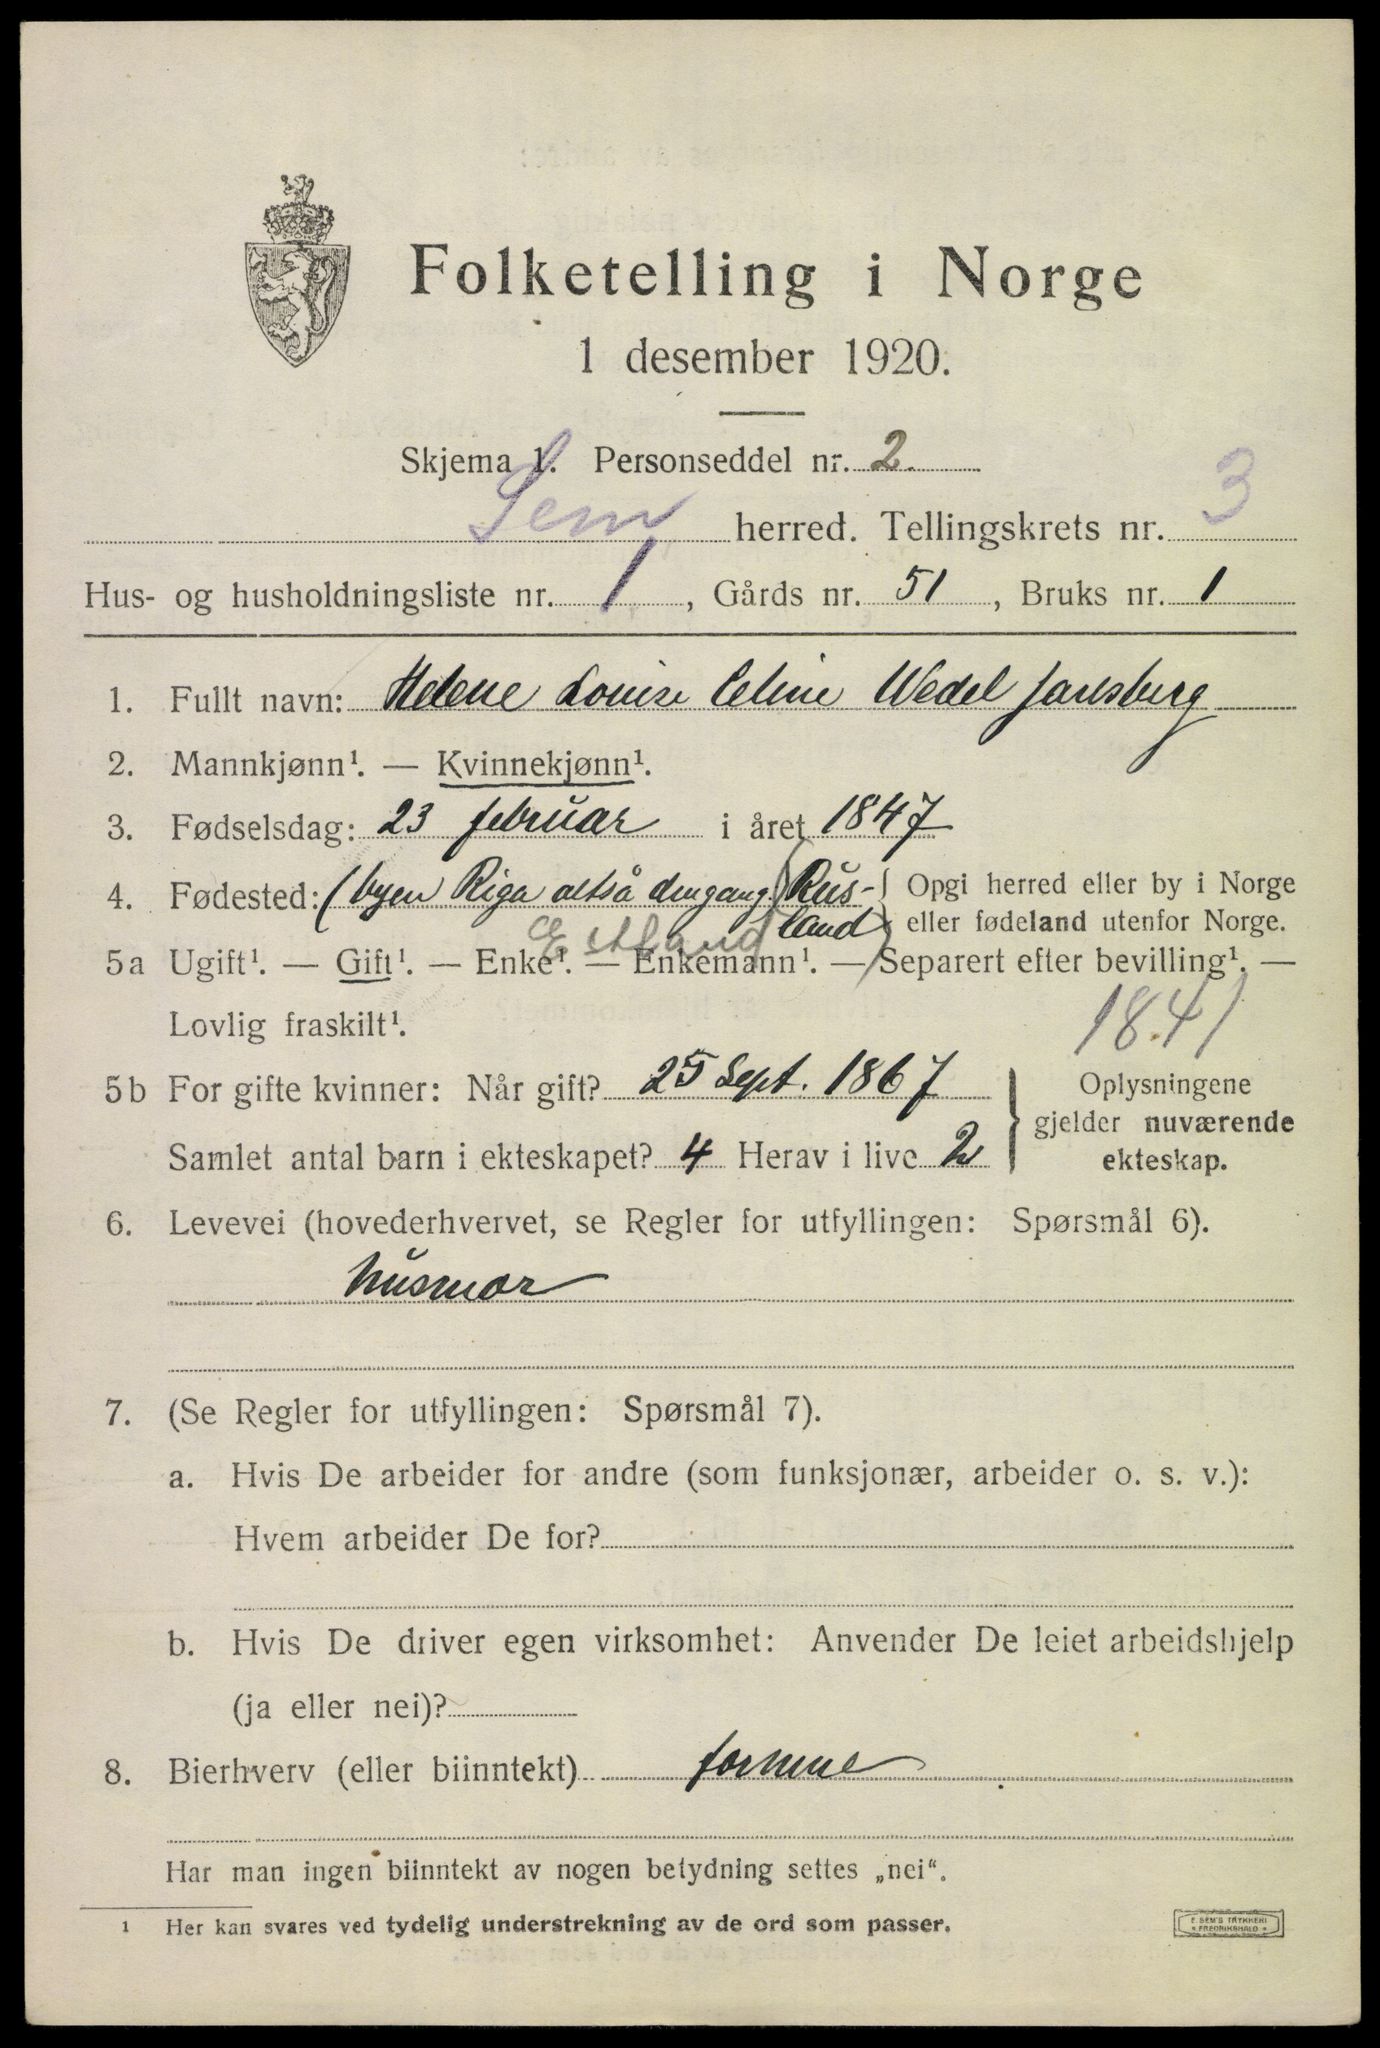 Folketelling i Norge
1 desember 1920.
Skjema 1. Personseddel nr. 2.
Sem herred. Tellingskrets nr. 3
Hus- og husholdningsliste nr. 1, Gårds nr. 51, Bruks nr. 1
1. Fullt navn: Helene Louise Celine Wedel Jarlsberg
2. Mannkjønn¹. — Kvinnekjønn¹.
3. Fødselsdag: 23 februar i året 1847
4. Fødested: (byen Riga altså dengang) Rus- { Opgi herred eller by i Norge
land { eller fødeland utenfor Norge.
Estland
5a Ugift¹. — Gift¹. — Enke¹. — Enkemann¹. — Separert efter bevilling¹. —
Lovlig fraskilt¹.
1841
5b For gifte kvinner: Når gift? 25 Sept. 1867 } Oplysningene
gjelder nuværende
Samlet antal barn i ekteskapet? 4 Herav i live 2 } ekteskap.
6. Levevei (hovederhvervet, se Regler for utfyllingen: Spørsmål 6).
husmor
7. (Se Regler for utfyllingen: Spørsmål 7).
a. Hvis De arbeider for andre (som funksjonær, arbeider o. s. v.):
Hvem arbeider De for?
b. Hvis De driver egen virksomhet: Anvender De leiet arbeidshjelp
(ja eller nei)?
8. Bierhverv (eller biinntekt) formue
Har man ingen biinntekt av nogen betydning settes „nei“.
¹ Her kan svares ved tydelig understrekning av de ord som passer.
E. SEM'S TRYKKERI
FREDRIKSHALD